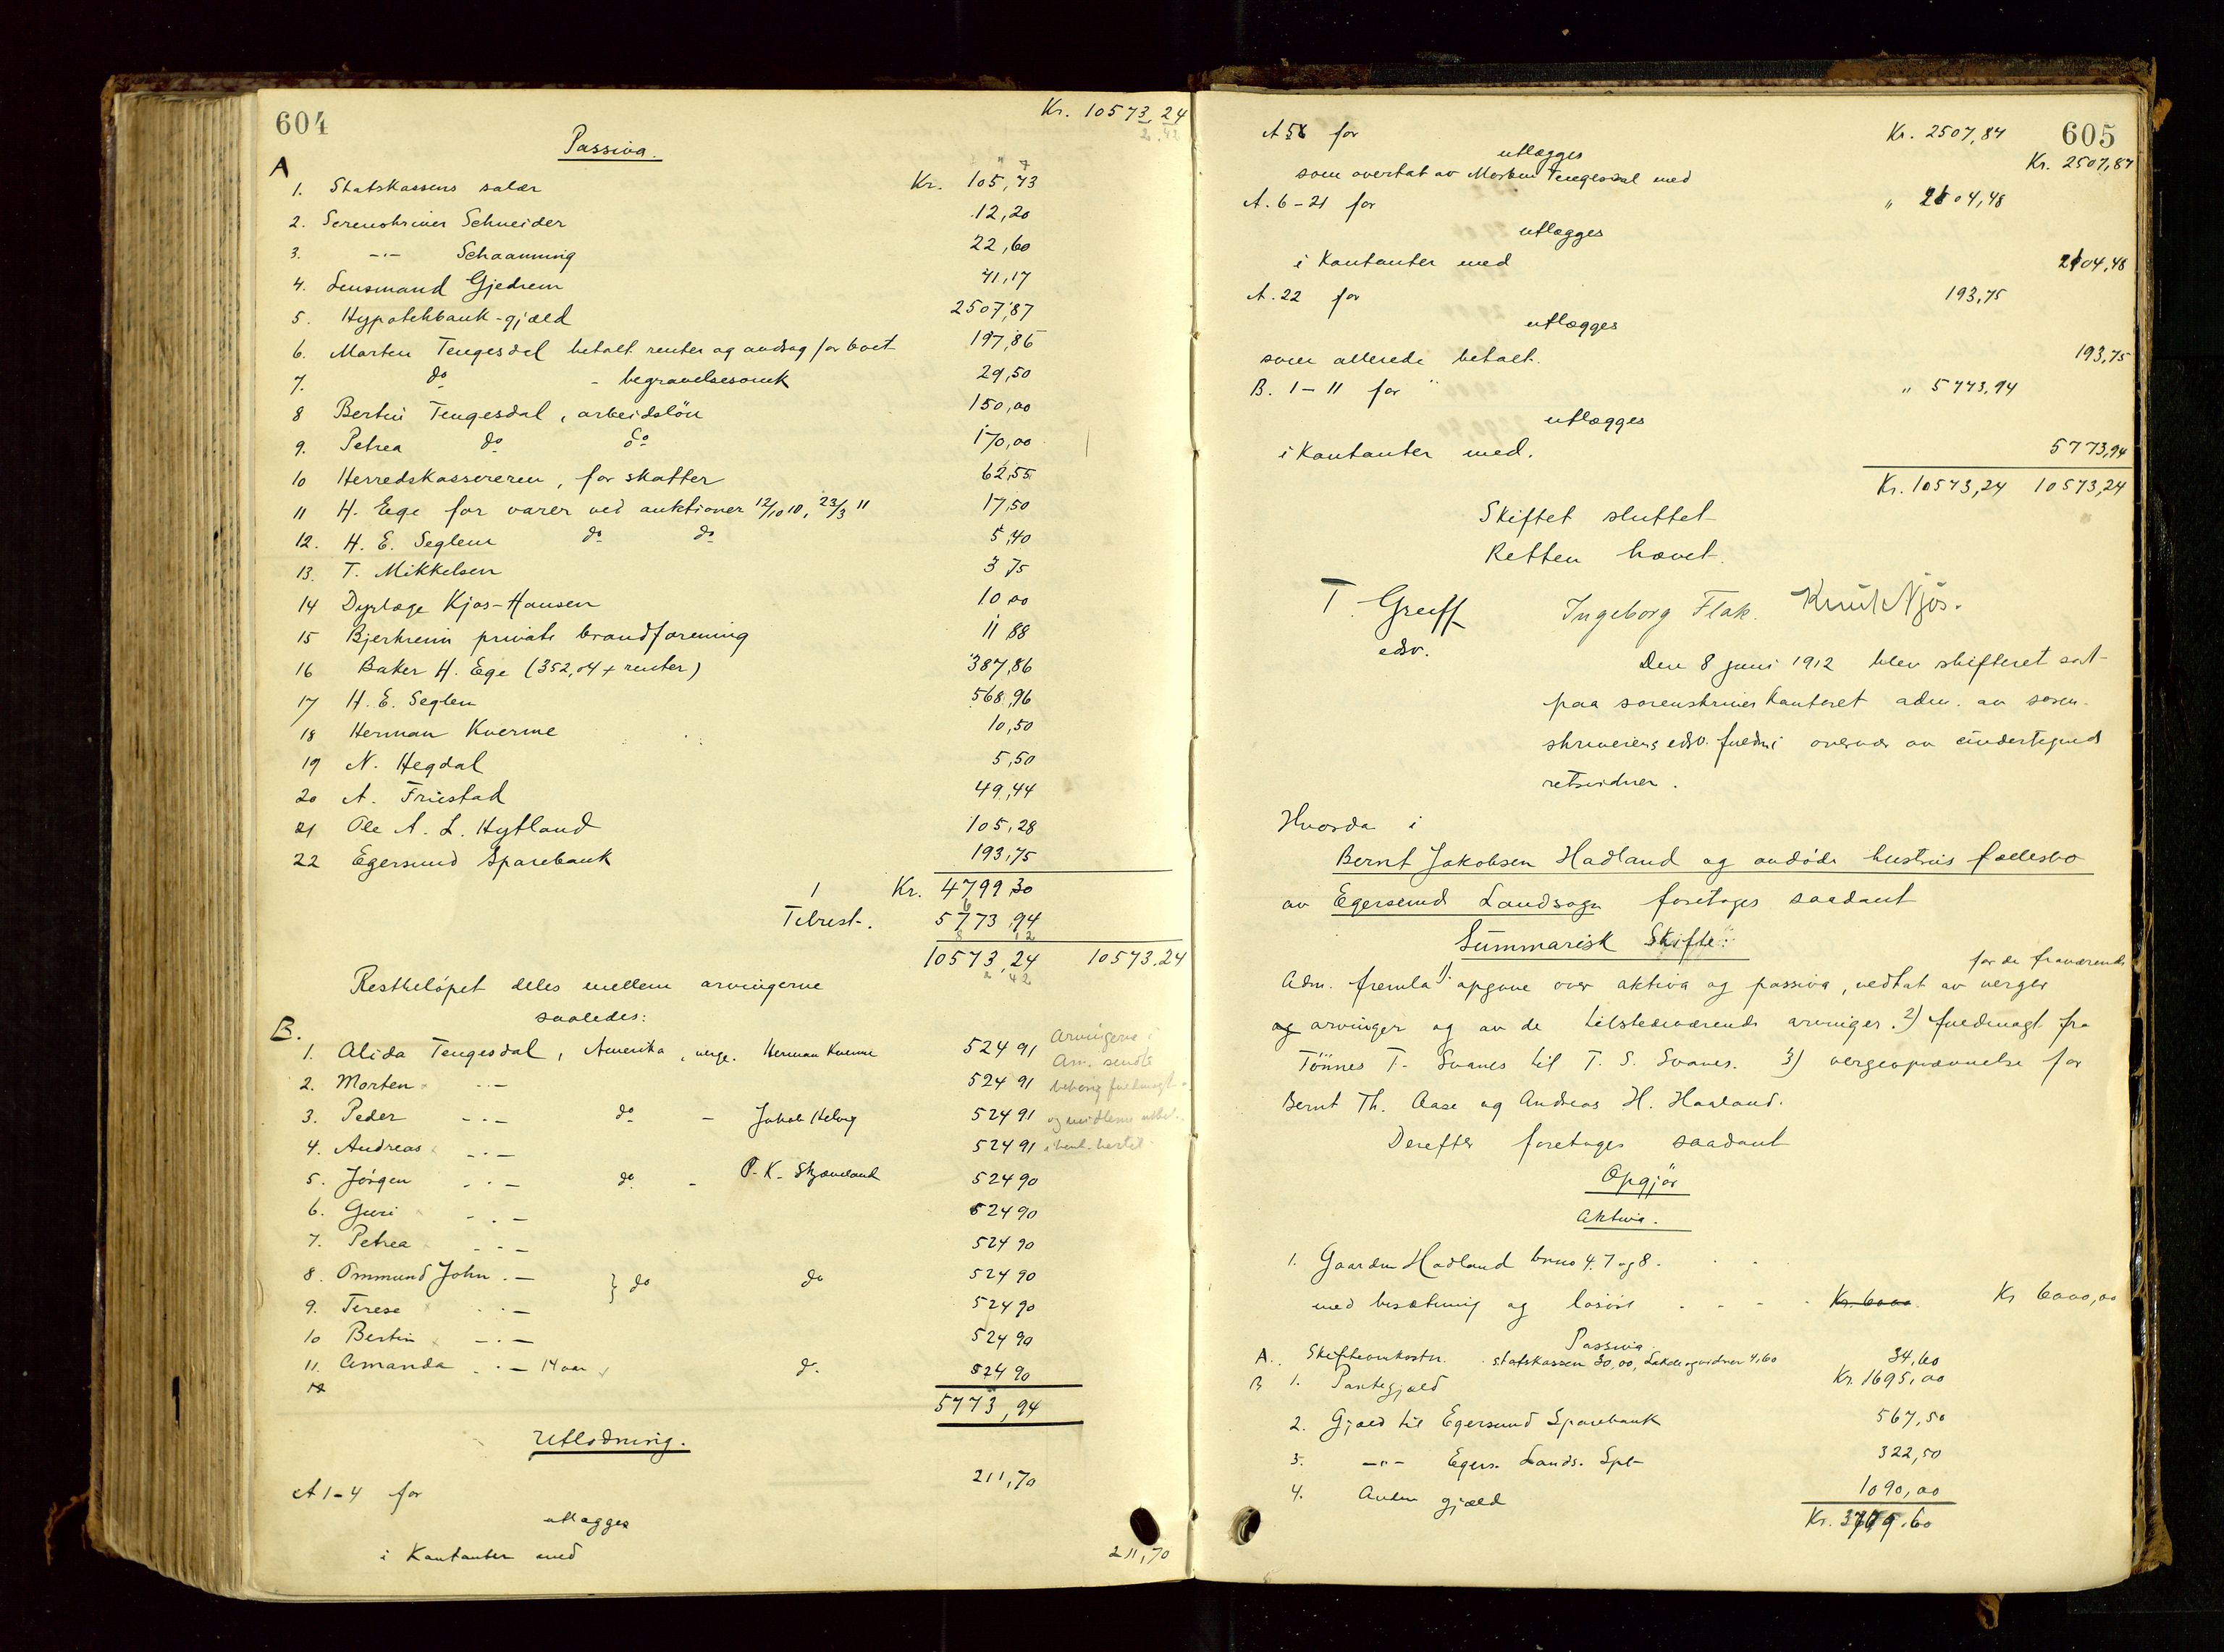 604
Kr. 10573,24
Passiva.
A
1. Statskassens salær Kr. 105,73
2. Sorenskriver Schneider 12,20
3. -"- Schaanning 22,60
4. Lensmand Gjedrem 71,17
5. Hypotekbank-gjæld 2507,87
6. Morten Tengesdal betalt renter og avdrag for boet 197,86
7. do - begravelsesomk 29,50
8 Bertin Tengesdal, arbeidsløn 150,00
9. Petrea do do 170,00
10 Herredskassereren, for skatter 62,55
11 H. Ege for varer ved auktioner 12/10 10, 23/3 11 17,50
12. H. E. Seglem do do 5,40
13. T. Mikkelsen 3 75
14 Dyrlæge Kjos-Hansen 10 00
15 Bjerkreim private brandforening 11 88
16 Baker H. Ege (352,04 + renter) 387,86
17 H. E. Seglem 568,96
18 Herman Kverme 10,50
19 N. Hegdal 5,50
20 A. Friestad 49,44
21 Ole A. L. Hytland 105,28
22 Egersund Sparebank 193,75
Kr. 4799 30
Tilrest. 5773,94
10573,24 10573.24
Restbeløpet deles mellem arvingerne
saaledes:
B.
1. Alida Tengesdal, Amerika, verge. Herman Kverme 524 91
2. Morten -"- 524 91
3. Peder -"- do - Jakob Helvig 524 91
4. Andreas -"- 524 91
5. Jörgen -"- do - P. K. Skjæveland 524 90
6. Guri -"- 524 90
7. Petrea -"- 524 90
8. Ommund John -"- } do do 524 90
9. Terese -"- 524 90
10 Bertin -"- 524 90
11. Amanda -"- 14 aar do 524 90
12
Arvingerne i
Am. sendte
behørig fuldmagt
5773,94
Utlodning.
A 1-4 for 211,70
utlægges
i Kontanter med 211,70
605
A 5 for Kr. 2507,87
utlægges
som overtat av Morten Tengesdal med Kr. 2507,87
A. 6-21 for " 2104,48
utlægges
i Kontanter med 2104,48
A. 22 for 193,75
utlægges
som allerede betalt. 193,75
B. 1-11 for " 5773,94
utlægges
i Kontanter med. 5773,94
Kr. 10573,24 10573,24
Skiftet sluttet
Retten hævet.
T. Greiff Ingeborg Flak. Knut Njøs.
edsv.
Den 8 juni 1912 blev skifteret sat
paa sorenskriverkontoret adm. av soren-
skriverens edsv. fuldm i overvær av undertegnede
retsvidner.
Hvorda i
Bernt Jakobsen Hadland og avdøde hustrus fællesbo
av Egersund Landsogn foretoges saadant
Summarisk Skifte:
Adm. fremla 1). opgave over aktiva og passiva, vedtat av verger for de fraværende
og arvinger og av de tilstedeværende arvinger. 2) fuldmagt fra
Tönnes T. Svanes til T. S. Svanes. 3) vergeopnævnelse for
Bernt Th. Aase og Andreas H. Haaland.
Derefter foretoges saadant
Opgjör
Aktiva.
1. Gaarden Hadland bruno 4. 7 og 8.
med besætning og løsöre . - - . Kr. 6000. Kr 6000,00
Passiva
A. Skifteomkostn. statskassen 30,00, Lokale og vidner 4,60 34,60
B 1. Pantegjæld Kr. 1695,00
2. Gjæld til Egersund Sparebank 567,50
3. -"- Egers. Lands. Spb 322,50
4. Anden gjæld 1090,00
Kr. 3709.60